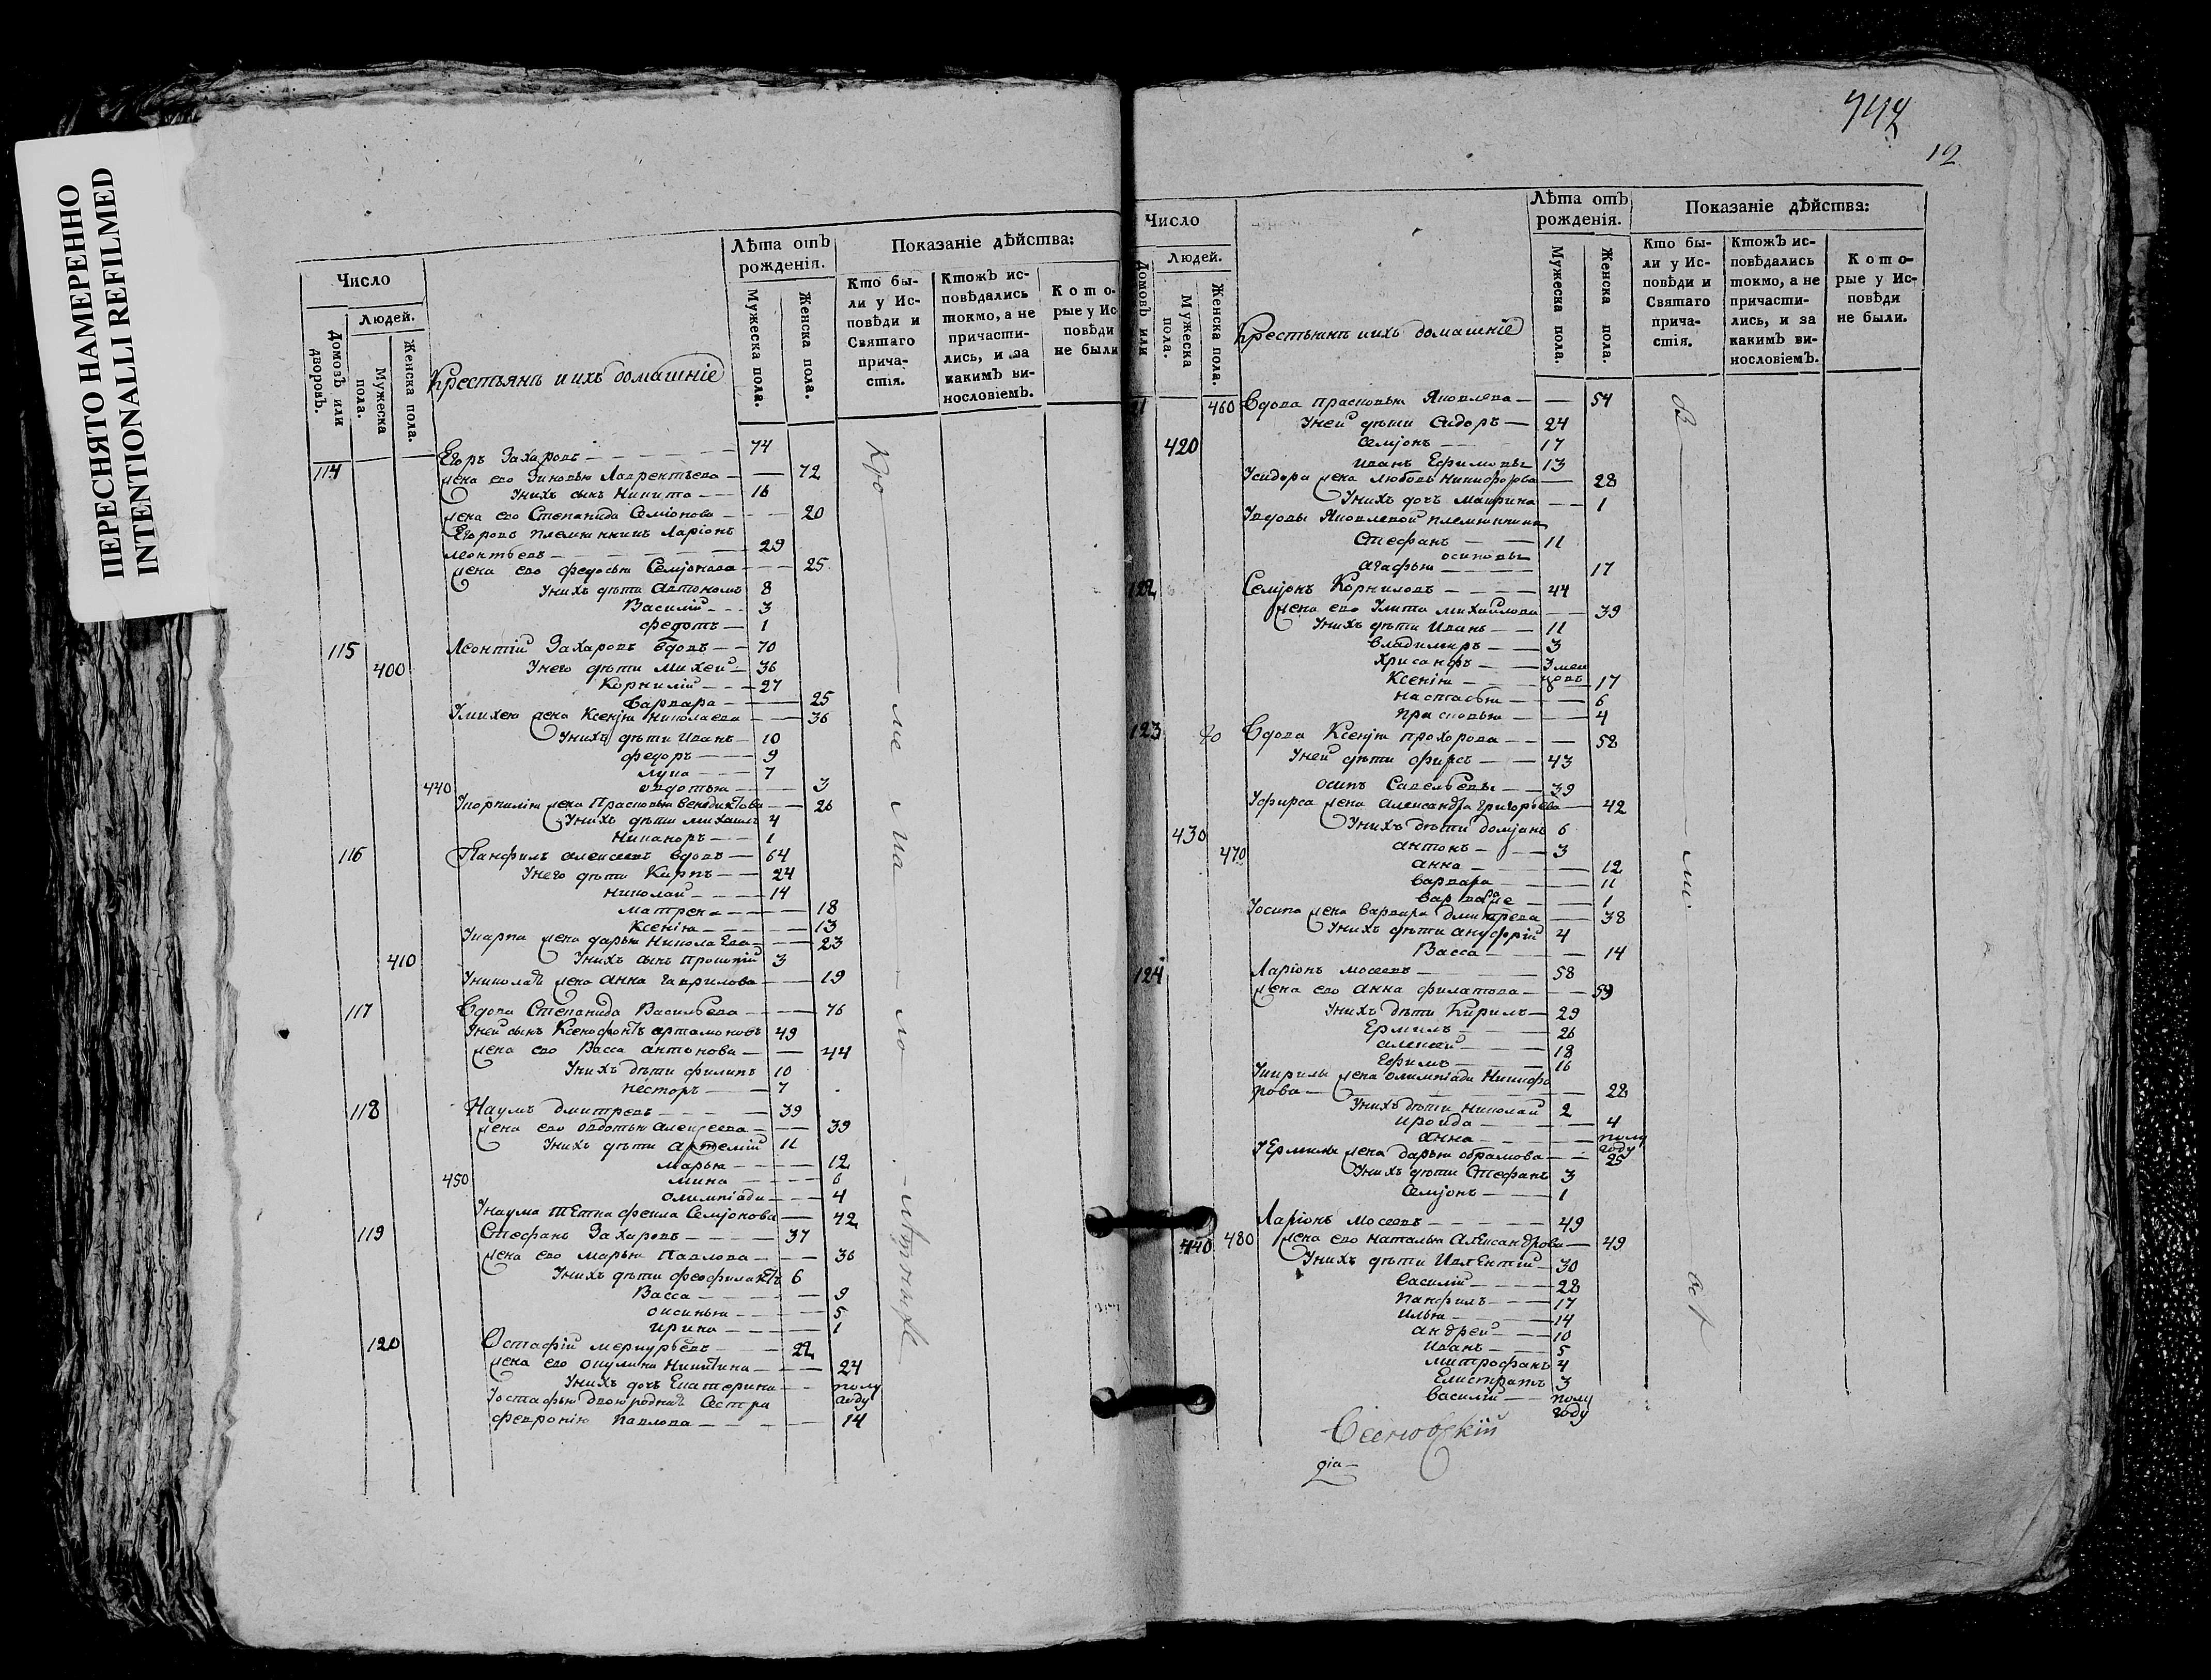 ПЕРЕСНЯТО НАМЕРЕННО
INTENTIONALLI REFILMED
Число
Людей.
Домовъ или дворовъ.
Мужеска пола.
Женска пола.
Крестьянъ и ихъ домашніе
Лѣта отъ рожденія.
Мужеска пола.
Женска пола.
Показаніе дѣйства:
Кто были у Исповѣди и Святаго причастія.
Ктожъ исповѣдались токмо, а не причастились, и за какимъ винословіемъ.
Которые у Исповѣди не были
114 Егоръ Захаровъ 74
жена ево Зиновья Лаврентьева 72
У нихъ сынъ Никита 16
жена ево Степанида Семіонова 20
Егоровъ племянникъ Ларіонъ
Леонтьевъ 29
жена ево Федосья Семіонова 25
У нихъ дѣти Автономъ 8
Василій 3
Федотъ 1
115 Леонтій Захаровъ вдовъ 70
400 У него дѣти Михей 36
Корнилій 27
Варвара 25
У михея жена Ксенія Николаева 36
У нихъ дѣти Иванъ 10
Федоръ 9
Лука 7
440 овдотья 3
У корнилія жена Прасковья Венедиктова 26
У нихъ дѣти михаилъ 4
Никаноръ 1
116 Панфилъ алексеевъ вдовъ 64
У него дѣти Карпъ 24
николай 14
матрена 18
Ксенія 13
У карпа жена дарья Никола Ева 23
410 У нихъ сынъ прокопій 3
У николая жена анна гаврилова 19
117 Вдова Степанида Васильева 76
У ней сынъ Ксенофонтъ артамоновъ 49
жена ево Васса антонова 44
У нихъ дѣти филипъ 10
несторъ 7
118 Наумъ дмитревъ 39
жена ево овдотья алексеева 39
У нихъ дѣти артемій 11
марья 12
450 мина 6
олимпіади 4
У наума тетка фекла Семіонова 42
119 Стефанъ Захаровъ 37
жена ево марья Павлова 36
У нихъ дѣти феофилактъ 6
Васса 9
оксинья 5
ирина 1
120 Остафій меркурьевъ 22
жена ево окулина Никитина 24
У нихъ дочь Екатерина полу году
У остафья двоюродная сестра
феврония павлова 14
742
12
Число
Людей.
Домовъ или
Мужеска пола.
Женска пола.
Крестьянъ и ихъ домашніе
Лѣта отъ рожденія.
Мужеска пола.
Женска пола.
Показаніе дѣйства:
Кто были у Исповѣди и Святаго причастія.
Ктожъ исповѣдались токмо, а не причастились, и за какимъ винословіемъ.
Которые у Исповѣди не были.
460 Вдова прасковья Яковлева 54
У ней дѣти Сидоръ 24
420 Семіонъ 17
иванъ Ефимовы 13
У сидора жена любовь никифорова 28
У нихъ дочь маврина 1
У вдовы Яковлевой племянники
Стефанъ 11
осиповы
агафья 17
122 Семіонъ Корниловъ 44
жена ево Улита михайлова 39
У нихъ дѣти Иванъ 11
владимиръ 3
Хрисанфъ 3 мец
Ксенія 17
настасья 6
прасковья 4
123 Вдова Ксенія прохорова 58
У ней дѣти фирсъ 43
осипъ Савельевы 39
У фирса жена александра григорьева 42
430 У нихъ дѣти доміанъ 6
470 антонъ 3
анна 12
варвара 11
варвара же 1
У осипа жена варвара дмитрева 38
У нихъ дѣти ануфрій 4
Васса 14
124 Ларіонъ мосеевъ 58
жена ево анна филатова 59
У нихъ дѣти Кирилъ 29
Ермилъ 26
алексей 18
Ефимъ 16
У кирилы жена олимпіади Никифо
рова 28
У нихъ дѣти николай 2
ироида 4
анна полу году
У Ермилы жена дарья абрамова 25
У нихъ дѣти Стефанъ 3
Семіонъ 1
Ларіонъ мосеевъ 49
440 480 жена ево наталья александрова 49
У нихъ дѣти Ивлентій 30
василій 28
панфилъ 17
илья 14
андрей 10
иванъ 5
митрофанъ 4
Елистратъ 3
василій полу году
діа